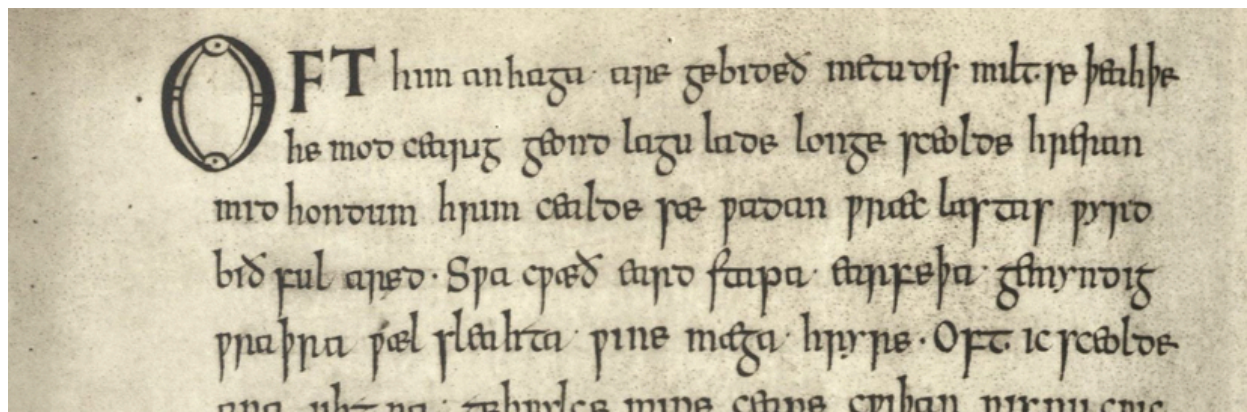 OFT him anhaga · are gebideð metudes miltse þeahþe
he mod cearig geond lagu lade longe sceolde hreran
mid hondum hrim cealde sæ ƿadan ƿræc lastas ƿyrd
bið ful aræd · Sƿa cƿæð eard stapa · earfeþa · gemyndig
ƿraþra ƿæl sleahta · ƿine mæga · hryre · Oft ic sceolde
ana uhtna · gehƿylce mine ceare cƿiþan nis nu cƿic